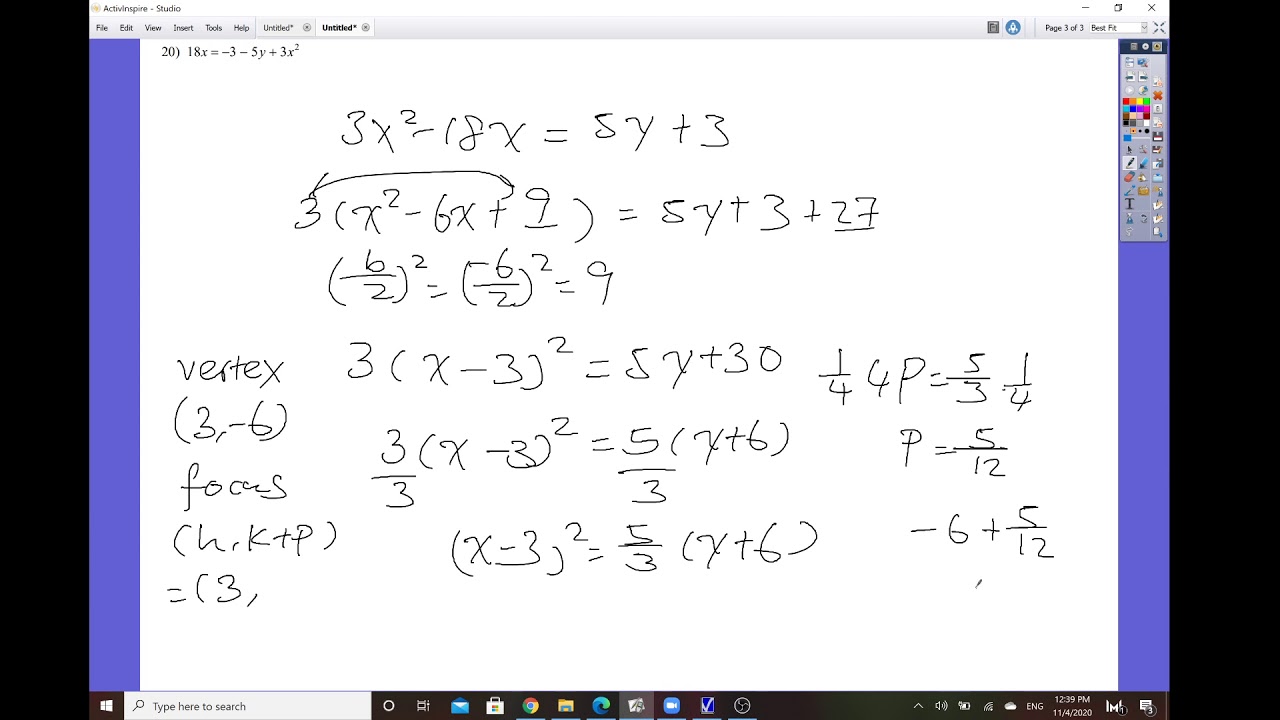 ActivInspire - Studio
File Edit View Insert Tools Help Untitled* Untitled* Page 3 of 3 Best Fit
20) 18x = −3 − 5y + 3x²
3x² - 18x = 5y + 3
3(x² - 6x + 9) = 5y + 3 + 27
(b/2)² = (-6/2)² = 9
3(x - 3)² = 5y + 30
3/3 (x - 3)² = 5/3 (y + 6)
(x - 3)² = 5/3 (y + 6)
vertex
(3, -6)
focus
(h, k+p)
= (3,
1/4 4p = 5/3 · 1/4
p = 5/12
-6 + 5/12
Type here to search
ENG
12:39 PM
11/4/2020
3